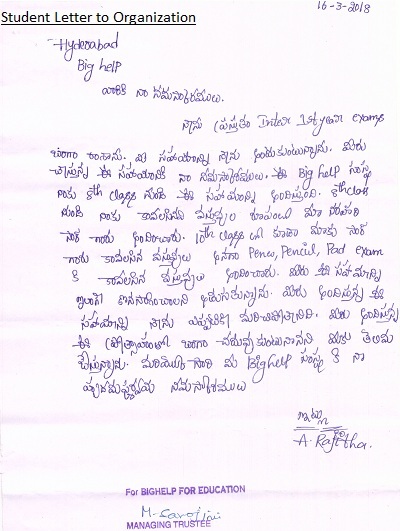 Student Letter to Organization
16-3-2018
Hyderabad
Big help
వారికి నా నమస్కారములు.
నేను ప్రస్తుతం Inter 1st year exams
బాగా రాసాను. మీ సహాయాన్ని నేను అందుకుంటున్నాను. మీరు
చేస్తున్న ఈ సహాయానికి నా నమస్కారములు. ఈ Big help సంస్థ
నాకు 8th class నుండి ఈ సహాయాన్ని అందిస్తుంది. 8th class
నుండి నాకు కావలసిన వస్తువుల రూపంలో మా
సార్ గారు అందించారు. 10th class లో కూడా మాకు సార్
గారు కావలసిన వస్తువులు అనగా Pens, Pencil, Pad exam
కి కావలసిన వస్తువులు అందించారు. మీరు ఈ సహాయాన్ని
ఇలాగే కొనసాగించాలని కోరుకుంటున్నాను. మీరు అందిస్తున్న ఈ
సహాయాన్ని నేను ఎప్పటికి మరిచిపోలేనిది. మీరు అందిస్తున్న
ఈ ప్రోత్సాహంతో బాగా చదువుకుంటానని మీకు తెలియ
చేస్తున్నాను. మరియొక్క సారి మీ Big help సంస్థ కి నా
హృదయపూర్వక నమస్కారములు
ఇట్లు
A. Rajitha.
For BIGHELP FOR EDUCATION
M. Sarojini
MANAGING TRUSTEE